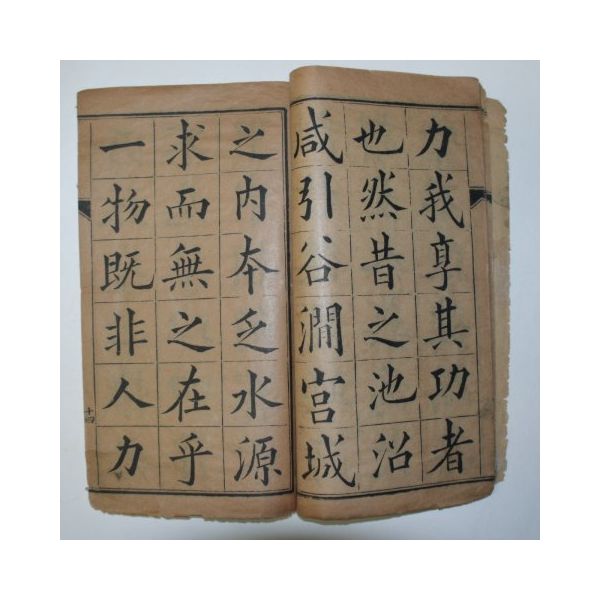 力我享其功者
也然昔之池沼
咸引谷澗宫城
之内本乏水源
求而無之在乎
一物既非人力
十四